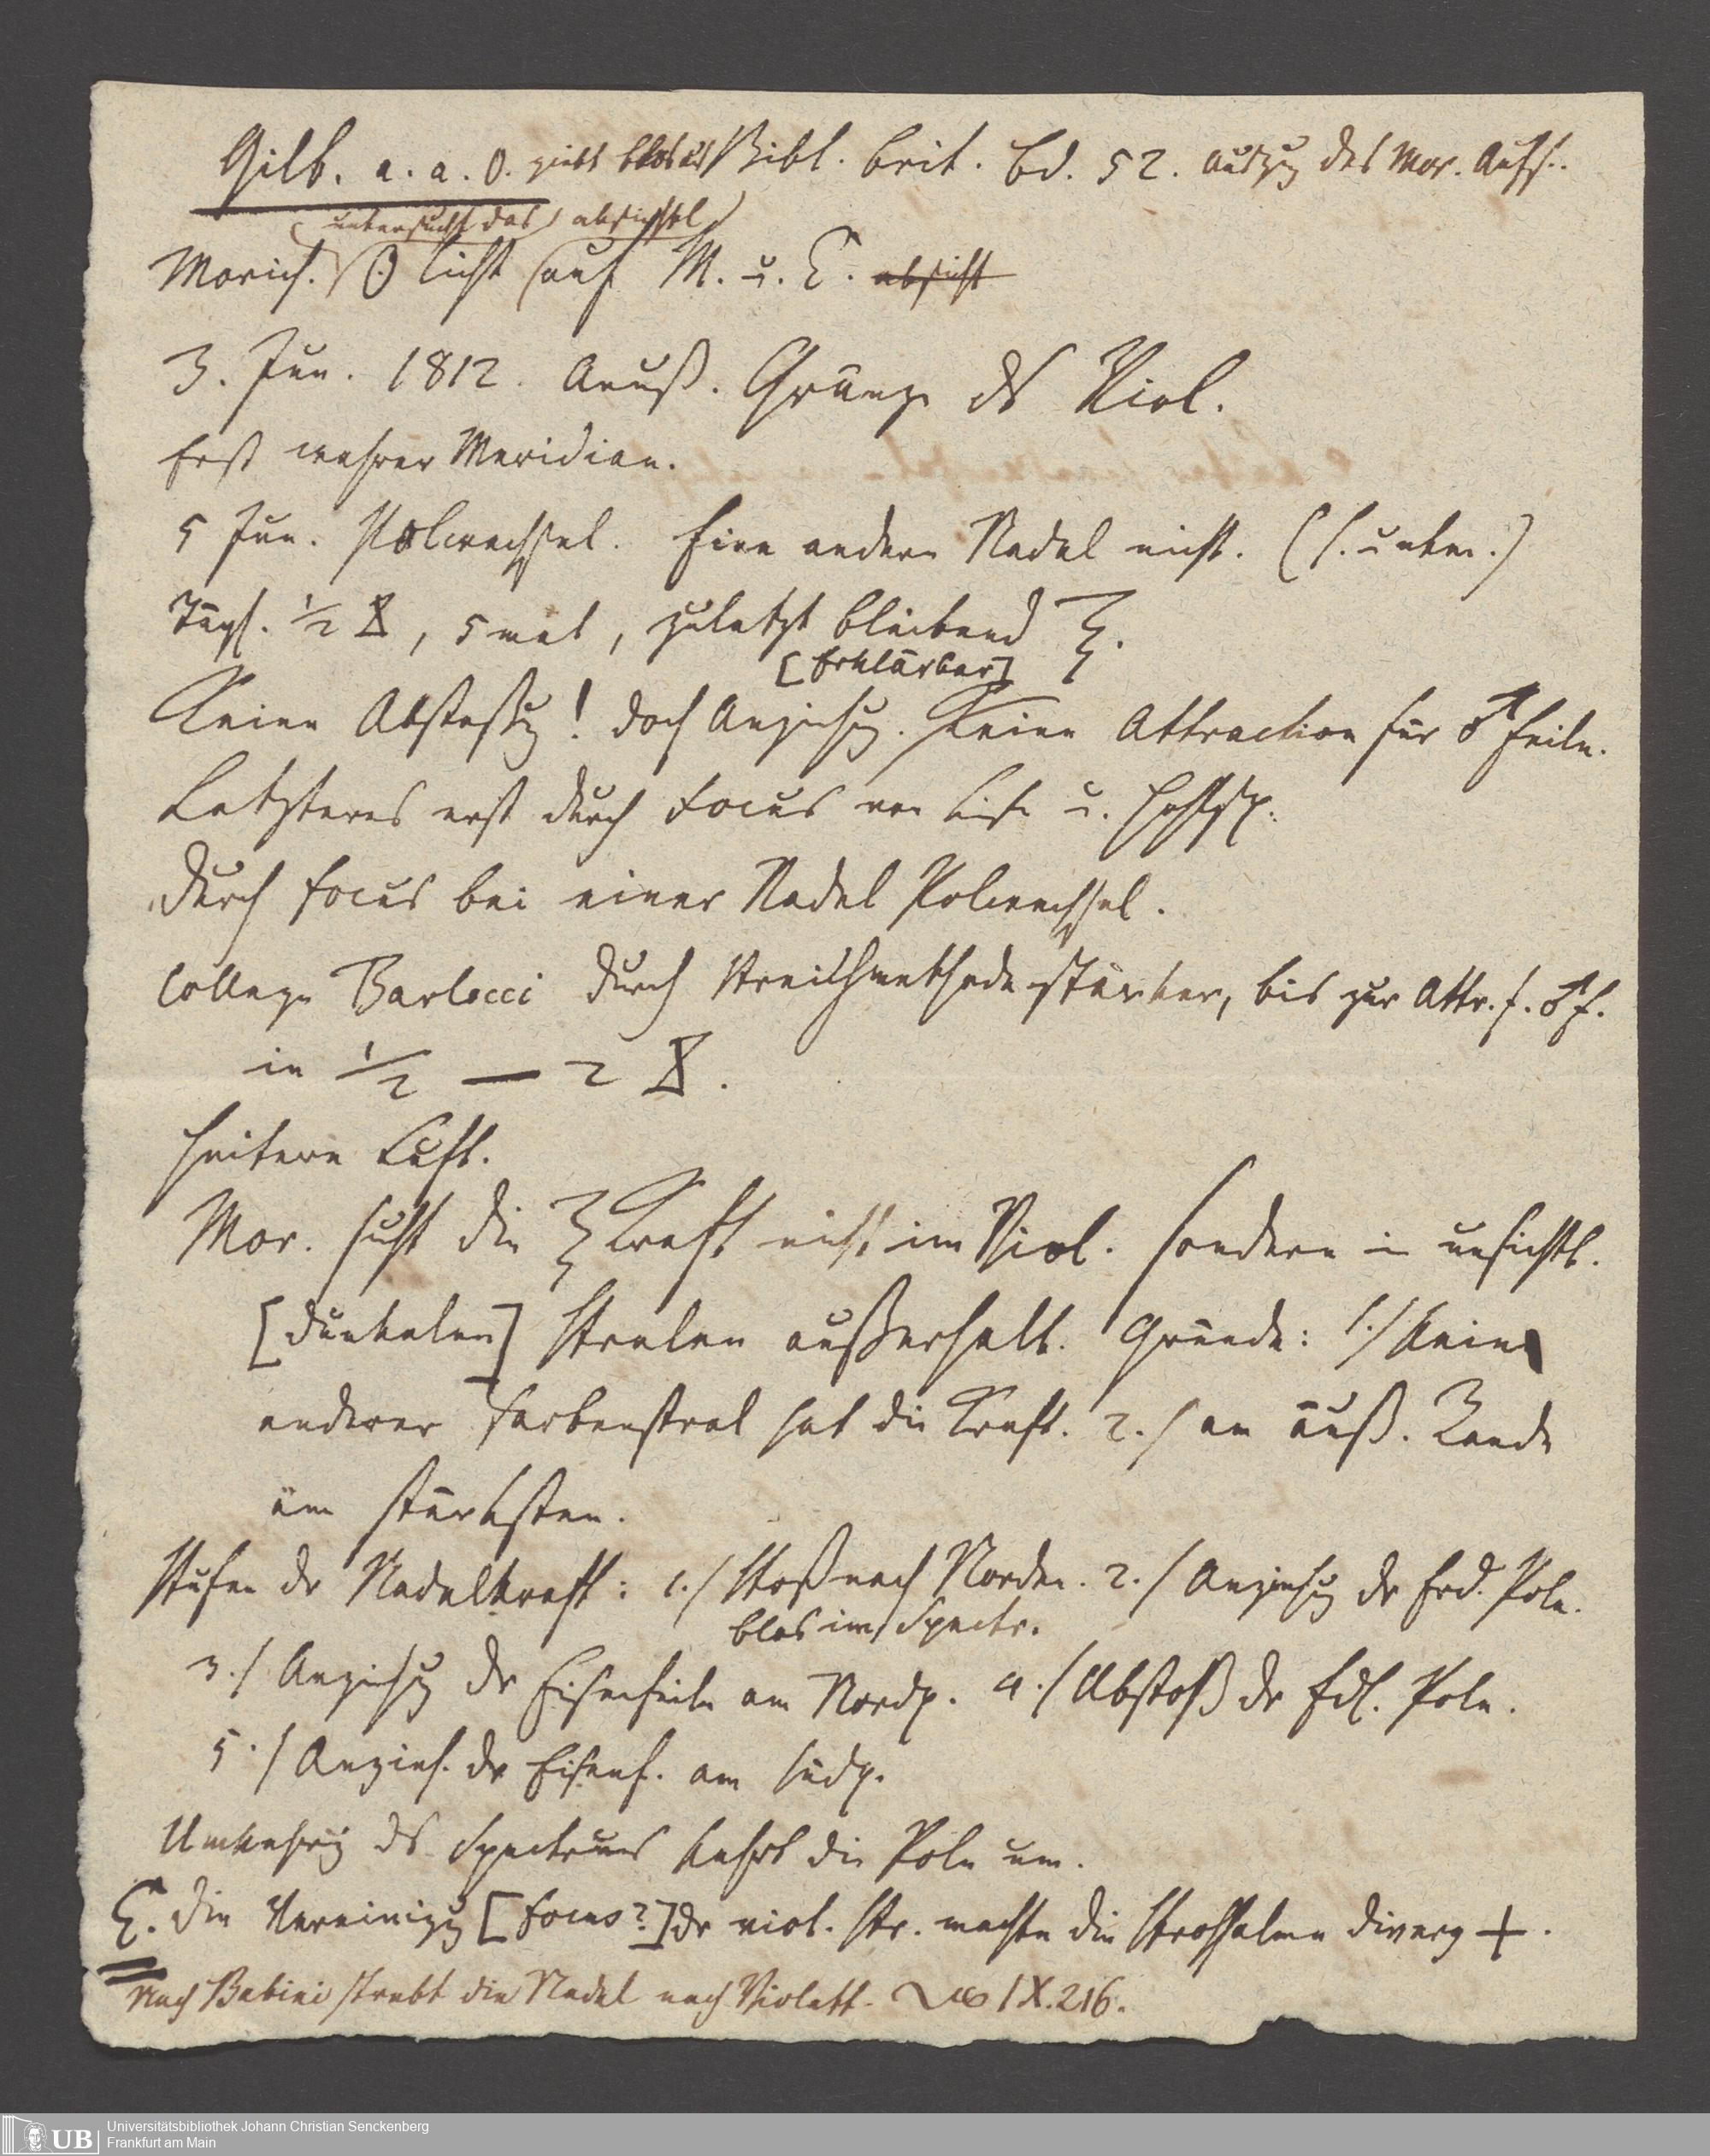 Gilb. a. a. O. giebt blos aus Bibl. brit. Bd. 52. Auszug des Mor. Aufs.
untersucht das absichtl
Morich. ☉ licht auf M. u. E. absicht
3. Jun. 1812. Aeuß. Gränze des Viol.
Erst wahrer Meridian.
5 Jun. Polwechsel. Eine andere Nadel nicht. (s. unten.)
Tägl. ½ ⧖, 5 mal, zuletzt bleibend
[erklärbar]
Keine Abstoßung! doch Anziehung. Keine Attraction für ♂ feile.
Letzteres erst durch Focus von Linse u.
Durch Focus bei einer Nadel Polwechsel.
College Barlocci durch Streichmethode stärker, bis zur Attr. f. ♂ f.
in ½ — 2 ⧖.
Heitere Luft.
Mor. sucht die Kraft nicht im Viol. sondern in unsichtb.
[dunkelen] Stralen außerhalb. Gründe: 1./ Kein
anderer Farbenstral hat die Kraft. 2./ am äuß. Rande
am stärksten.
Stufen der Nadelkraft: 1./ Stoß nach Norden. 2./ Anziehung der Erd. Pole.
blos im Spectr.
3./ Anziehung der Eisenfeile am Nordp. 4./ Abstoß der Pole.
5./ Anzieh. der Eisenf. am Südp.
Umkehrung des Spectrums kehrt die Pole um.
E. Die Vereinigung [Focus?] der viol. Str. machte die Strohhalme diverg +.
Nach Babini strebt die Nadel nach Violett. IX. 216.
UB Universitätsbibliothek Johann Christian Senckenberg
Frankfurt am Main